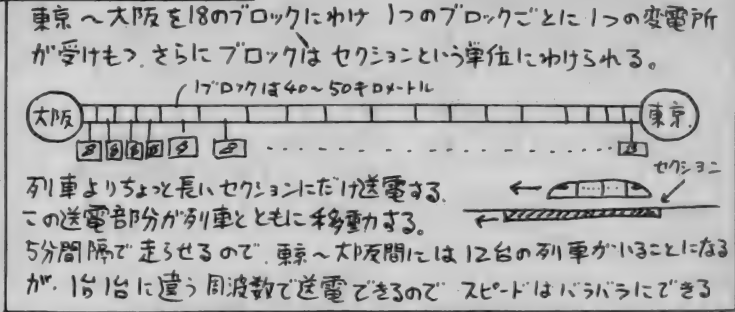 東京～大阪を18のブロックにわけ 1つのブロックごとに1つの変電所
が受けもつ.さらにブロックはセクションという単位にわけられる。
1ブロックは40～50キロメートル
大阪
東京
セクション
列車よりちょっと長いセクションにだけ送電する.
この送電部分が列車とともに移動する。
5分間隔で走らせるので.東京～大阪間には12台の列車がいることになる
が.1台1台に違う周波数で送電できるので スピードはバラバラにできる